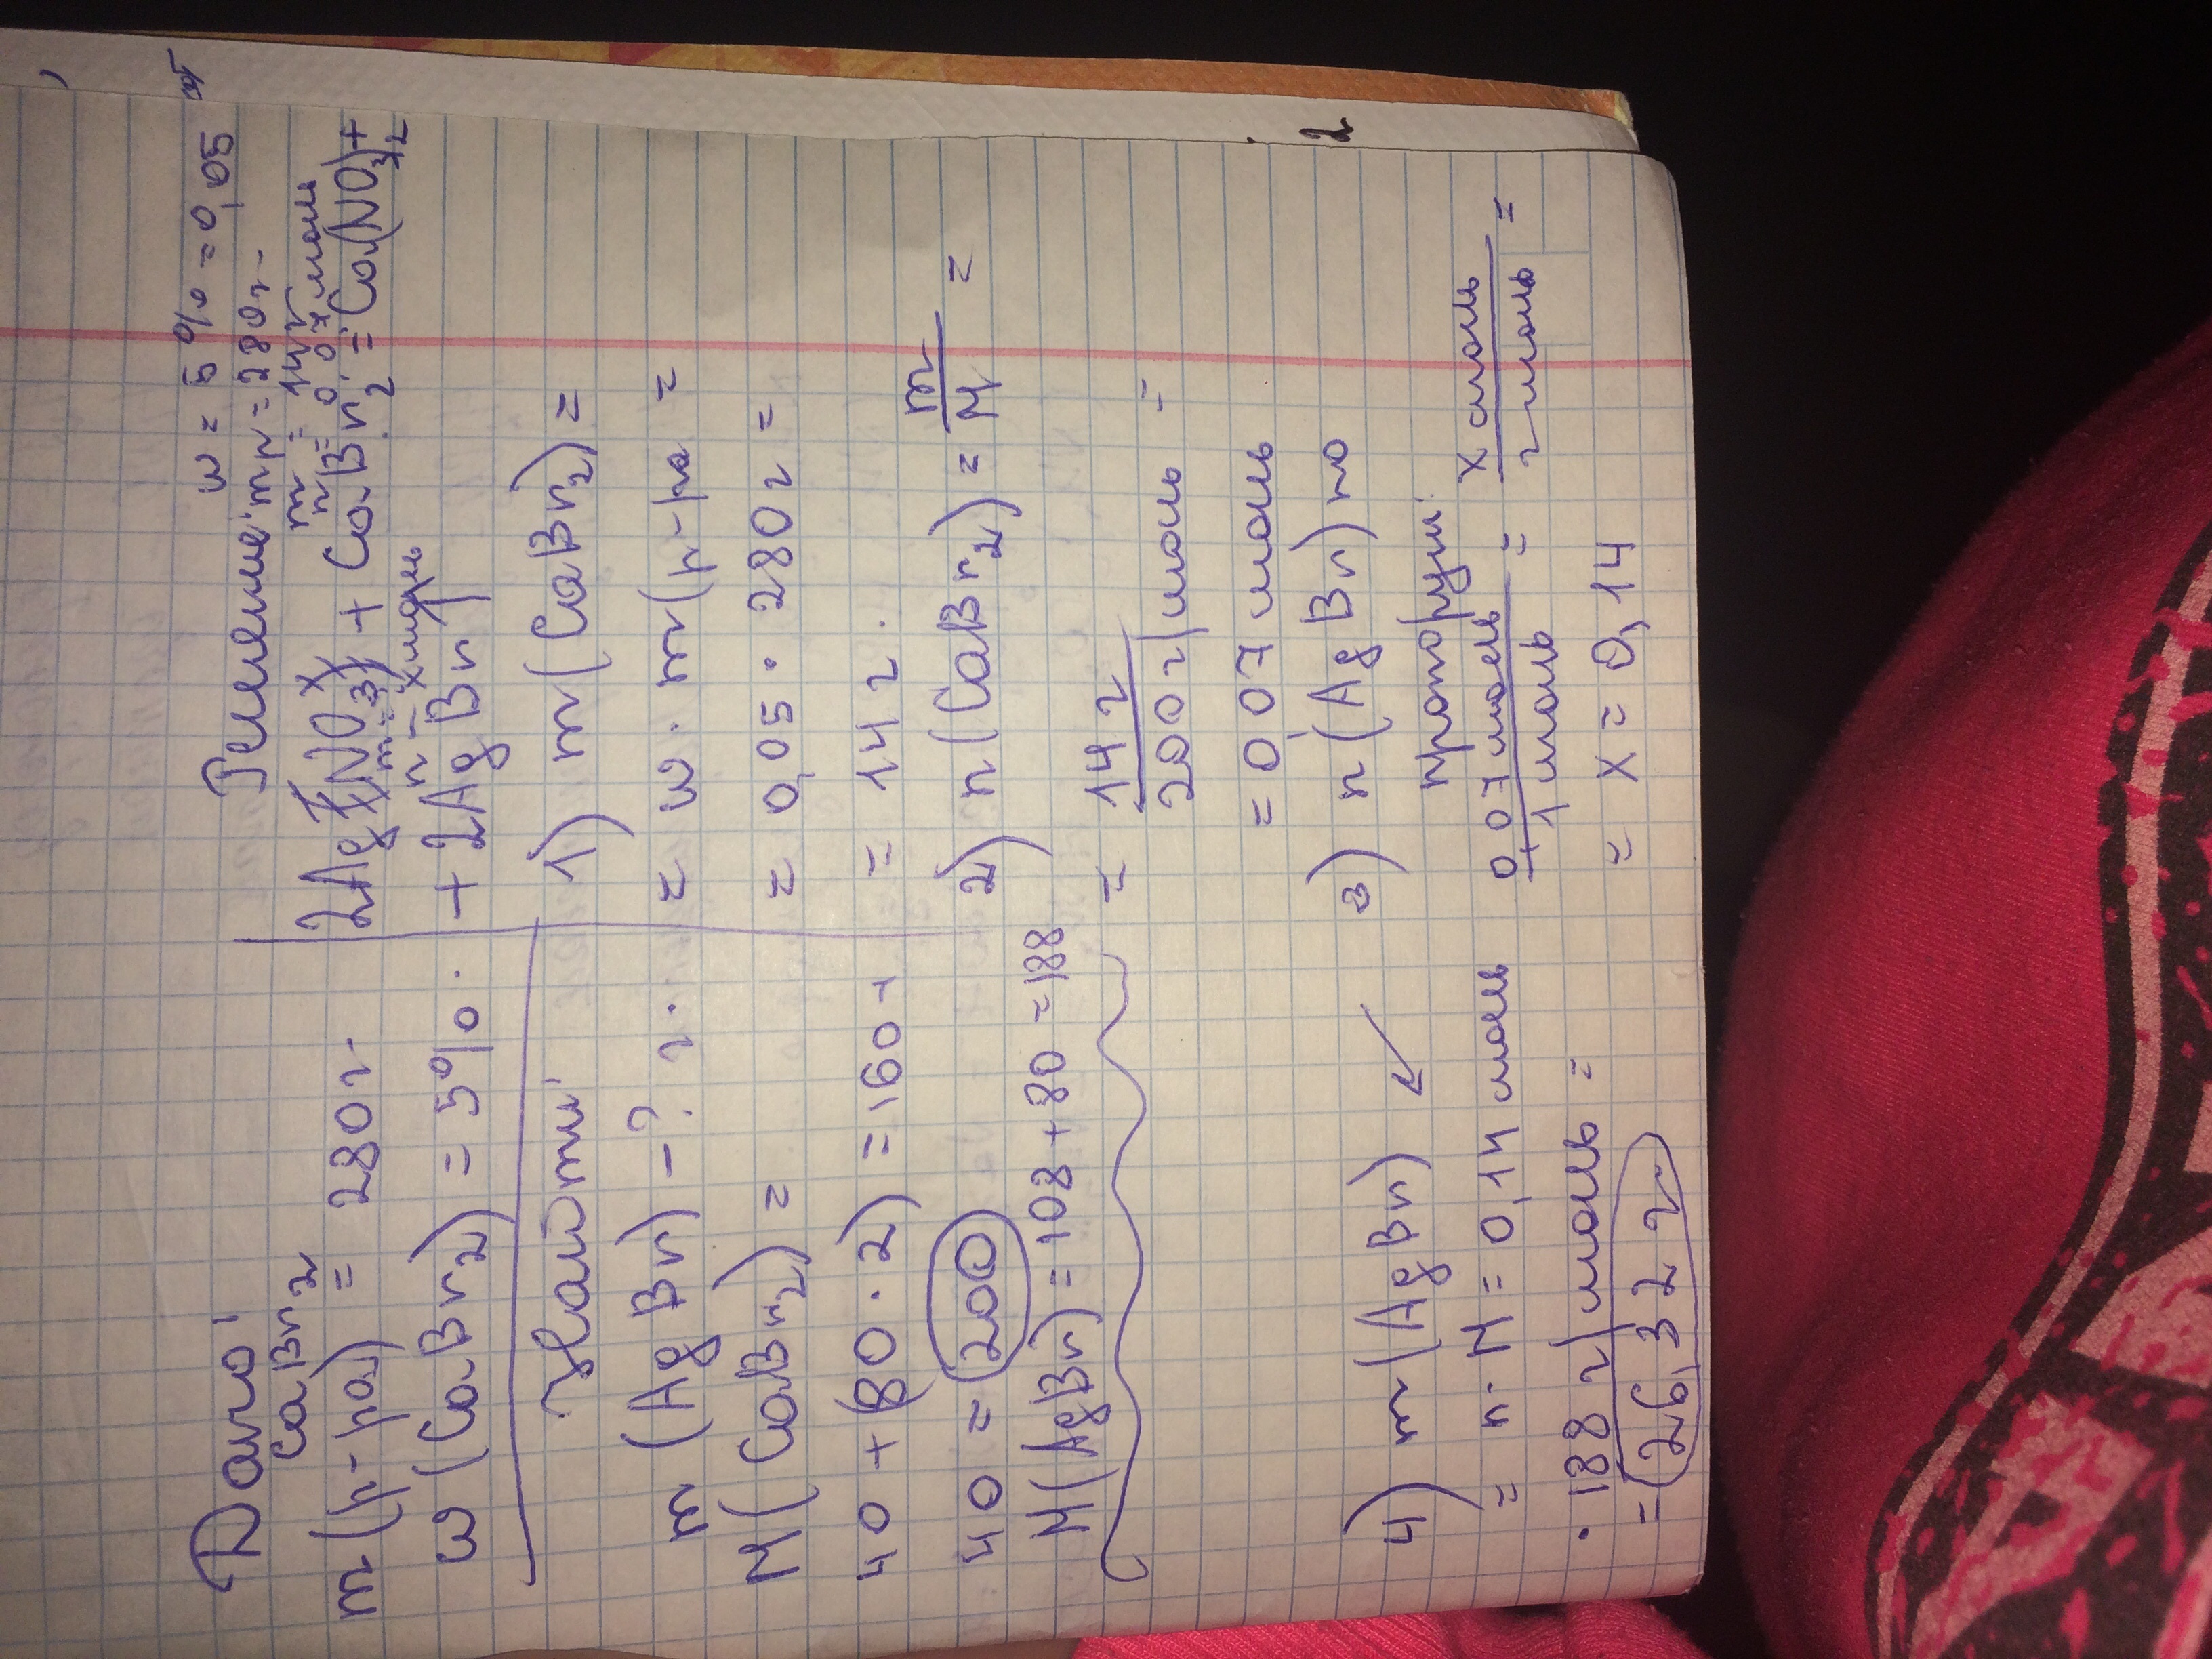 Дано:
CaBr2
m(р-ра) = 280 г
ω(CaBr2) = 5%.
Найти:
m(AgBr) - ? г.
M(CaBr2) =
40 + (80 · 2) = 160 +
40 = 200
M(AgBr) = 108 + 80 = 188
Решение:
ω = 5% = 0,05
mр = 280 г
m = 14 г
n = 0,07 моль
2AgNO3 + CaBr2 = Ca(NO3)2 +
n - x моль
+ 2AgBr↑
1) m(CaBr2) =
= ω · m(р-ра =
= 0,05 · 280 г =
= 14 г.
2) n(CaBr2) = m/M =
= 14 г / 200 г/моль =
= 0,07 моль
3) n(AgBr) по
пропорции:
0,07 моль / 1 моль = x моль / 2 моль =
= x = 0,14
4) m(AgBr)
= n · M = 0,14 моль
· 188 г/моль =
= 26,32 г.
2